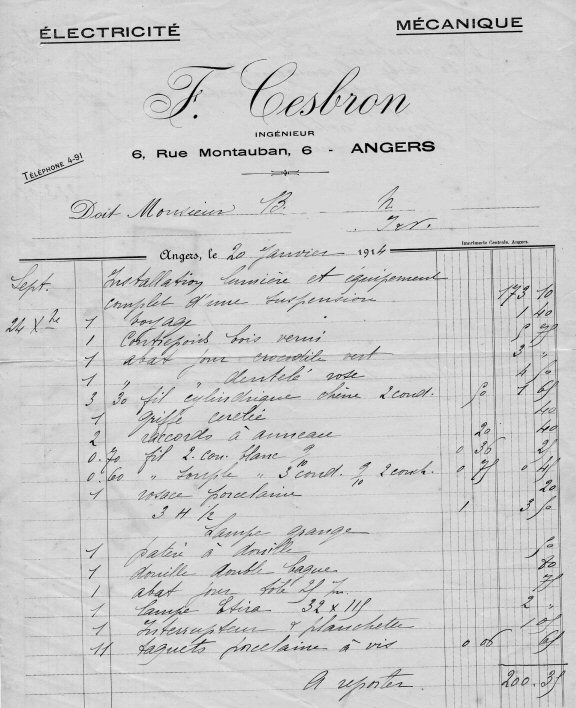 ÉLECTRICITÉ
MÉCANIQUE
F. Cesbron
INGÉNIEUR
6, Rue Montauban, 6 - ANGERS
TÉLÉPHONE 4-91
Doit Monsieur B.
Imprimerie Centrale, Angers.
Angers, le 20 Janvier 1914
Sept. Installation lumière et équipement
complet d'une suspension 173 10
24 Xbre 1 voyage 1 40
1 Contrepoids bois verni 5 75
1 abat jour crocodile vert 3 "
1 " " dentelé rose 4 50
3 30 fil cylindrique chêne 2 cond. 50 1 65
1 griffe cerclée 40
2 raccords à anneau 20 40
0.70 fil 2 con. blanc 0 36 25
0.60 " souple " 0 75 0 45
1 rosace porcelaine 20
3 H 1/2 1 3 50
Lampe grange
1 patère à douille 50
1 douille double bague 70
1 abat jour tôle 25 75
1 lampe Etira 32 x 115 2 "
1 Interrupteur & planchette 1 05
11 taquets porcelaine à vis 0 06 65
A reporter. 200.35